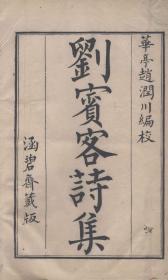 華亭趙潤川編校
劉賓客詩集
涵碧齋藏版